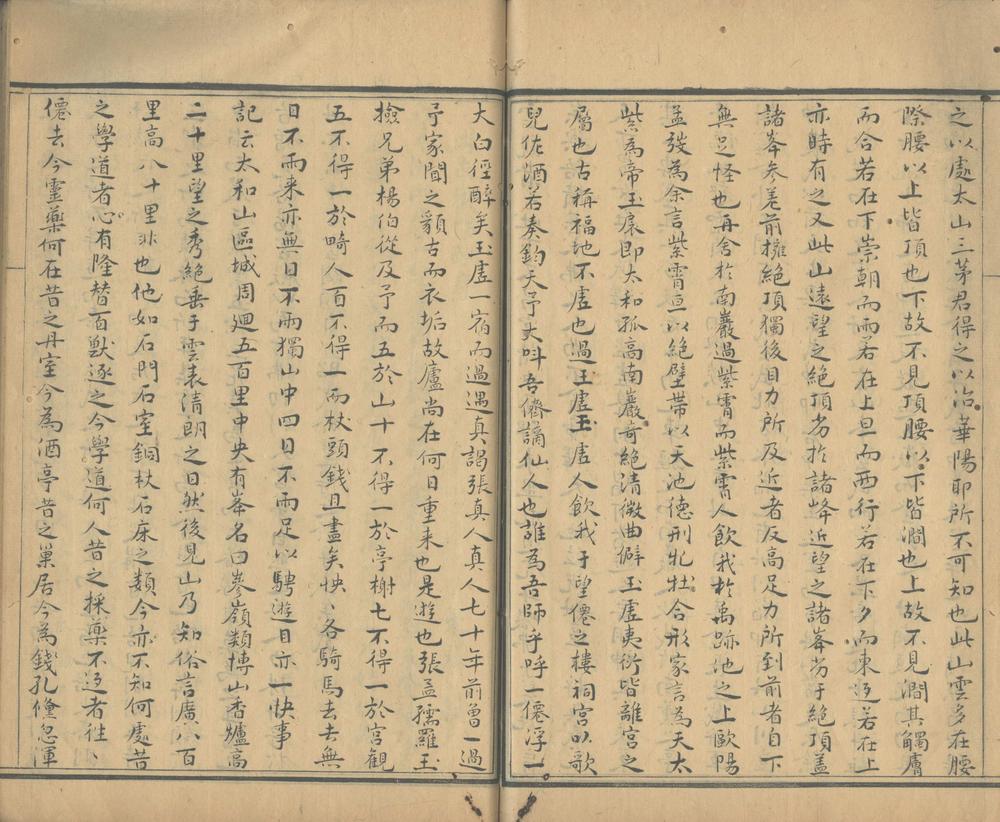 之以處太山三茅君得之以治華陽耶所不可知也此山雲多在腰
際腰以上皆頂也下故不見頂腰以下皆澗也上故不見澗其觸膚
而合若在下崇朝而雨若在上旦而西行若在下夕而東返若在上
亦時有之又此山遠望之絕頂劣於諸峰近望之諸峯劣于絕頂蓋
諸峯參差前擁絕頂獨後目力所及近者反高足力所到前者自下
無足怪也再舍於南巖過紫霄而紫霄人飲我於禹跡池之上歐陽
孟弢為余言紫霄亘以絕壁帶以天池德刑牝牡合形家言為天太
紫為帝玉扆即太和孤高南巖奇絕清微曲僻玉虛夷衍皆離宮之
屬也古稱福地不虛也過玉虛玉虛人飲我于望僊之樓祠宮以歌
兒佐酒若奏鈞天予大呌吾儕謫仙人也誰為吾師乎呼一僊浮一
大白徑醉矣玉虛一宿而過遇真謁張真人真人七十年前曾一過
予家聞之顙古而衣垢故廬尚在何日重来也是遊也張孟孺羅玉
撿兄弟楊伯從及予而五於山十不得一於亭榭七不得一於宮觀
五不得一於畸人百不得一而杖頭錢且盡矣怏丶各騎馬去去無
日不雨来亦無日不雨獨山中四日不雨足以騁遊目亦一快事
記云太和山區域周廻五百里中央有峯名曰參嶺類博山香爐高
二十里望之秀絕垂于雲表清朗之日然後見山乃知俗言廣八百
里高八十里非也他如石門石室銅杖石床之類今亦不知何處昔
之學道者心有隆替百獸逐之今學道何人昔之採藥不返者往丶
僊去今靈藥何在昔之丹室今為酒亭昔之巢居今為錢孔儵忽渾